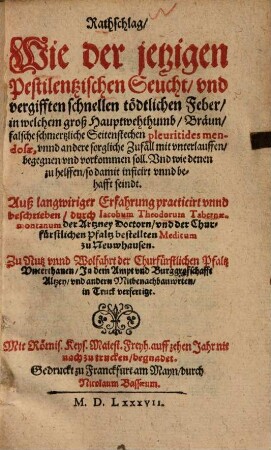 Rathschlag/
Wie der jetzigen
Pestilentzischen Seucht/ vnd
vergifften schnellen tödtlichen Feber/
in welchem groß Hauptwehthumb/ Bräun/
falsche schmertzliche Seitenstechen pleuritides men-
dosæ, vnnd andere sorgliche Zufäll mit vnterlauffen/
begegnen vnd vorkommen soll. Vnd wie denen
zu helffen/ so damit inficirt vnnd be-
hafft seindt.
Auß langwiriger Erfahrung practicirt vnnd
beschrieben/ durch Iacobum Theodorum Tabernæ-
montanum der Artzney Doctorn/ vnd der Chur-
fürstlichen Pfaltz bestellten Medicum
zu Neuwhausen.
Zu Nutz vnnd Wolfahrt der Churfürstlichen Pfaltz
Vnterthanen/ In dem Ampt vnd Burggraffschafft
Altzey/ vnd andern Mitbenachbauwrten/
in Truck verfertigt.
Mit Römis. Keys. Maiest. Freyh. auff zehen Jahr nit
nach zu trucken/ begnadet.
Gedruckt zu Franckfurt am Mayn/ durch
Nicolaum Bassæum.
M. D. LXXXVII.